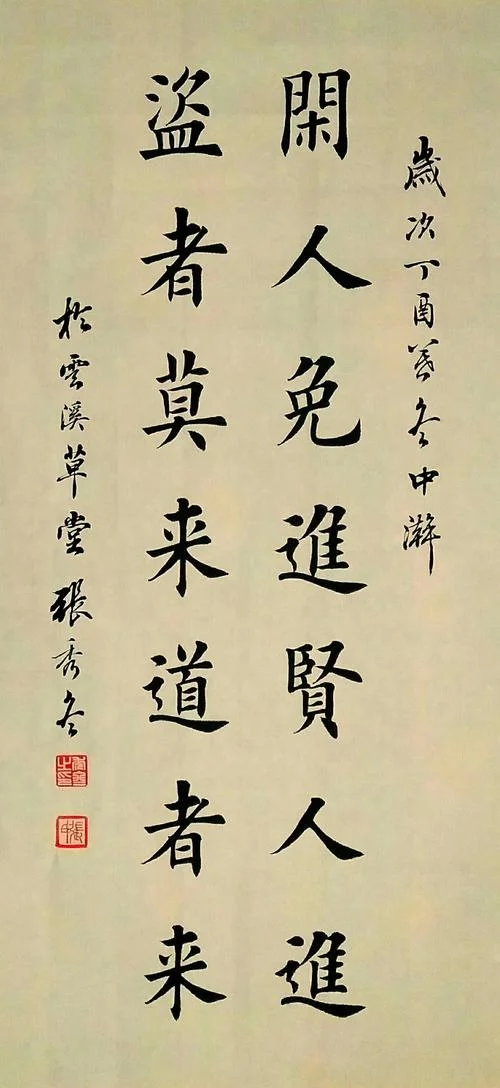 歲次丁酉并冬中澣
閑人免進賢人進
盜者莫来道者来
於雲溪草堂張秀冬